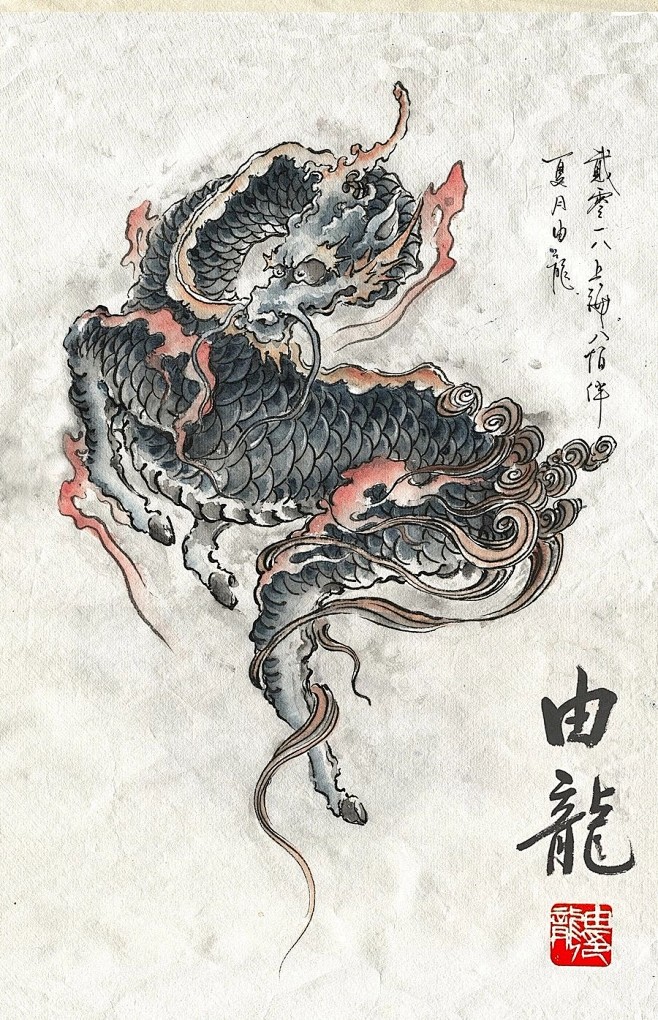 贰零一八上海。八佰伴
夏月由龍
由龍
由龍